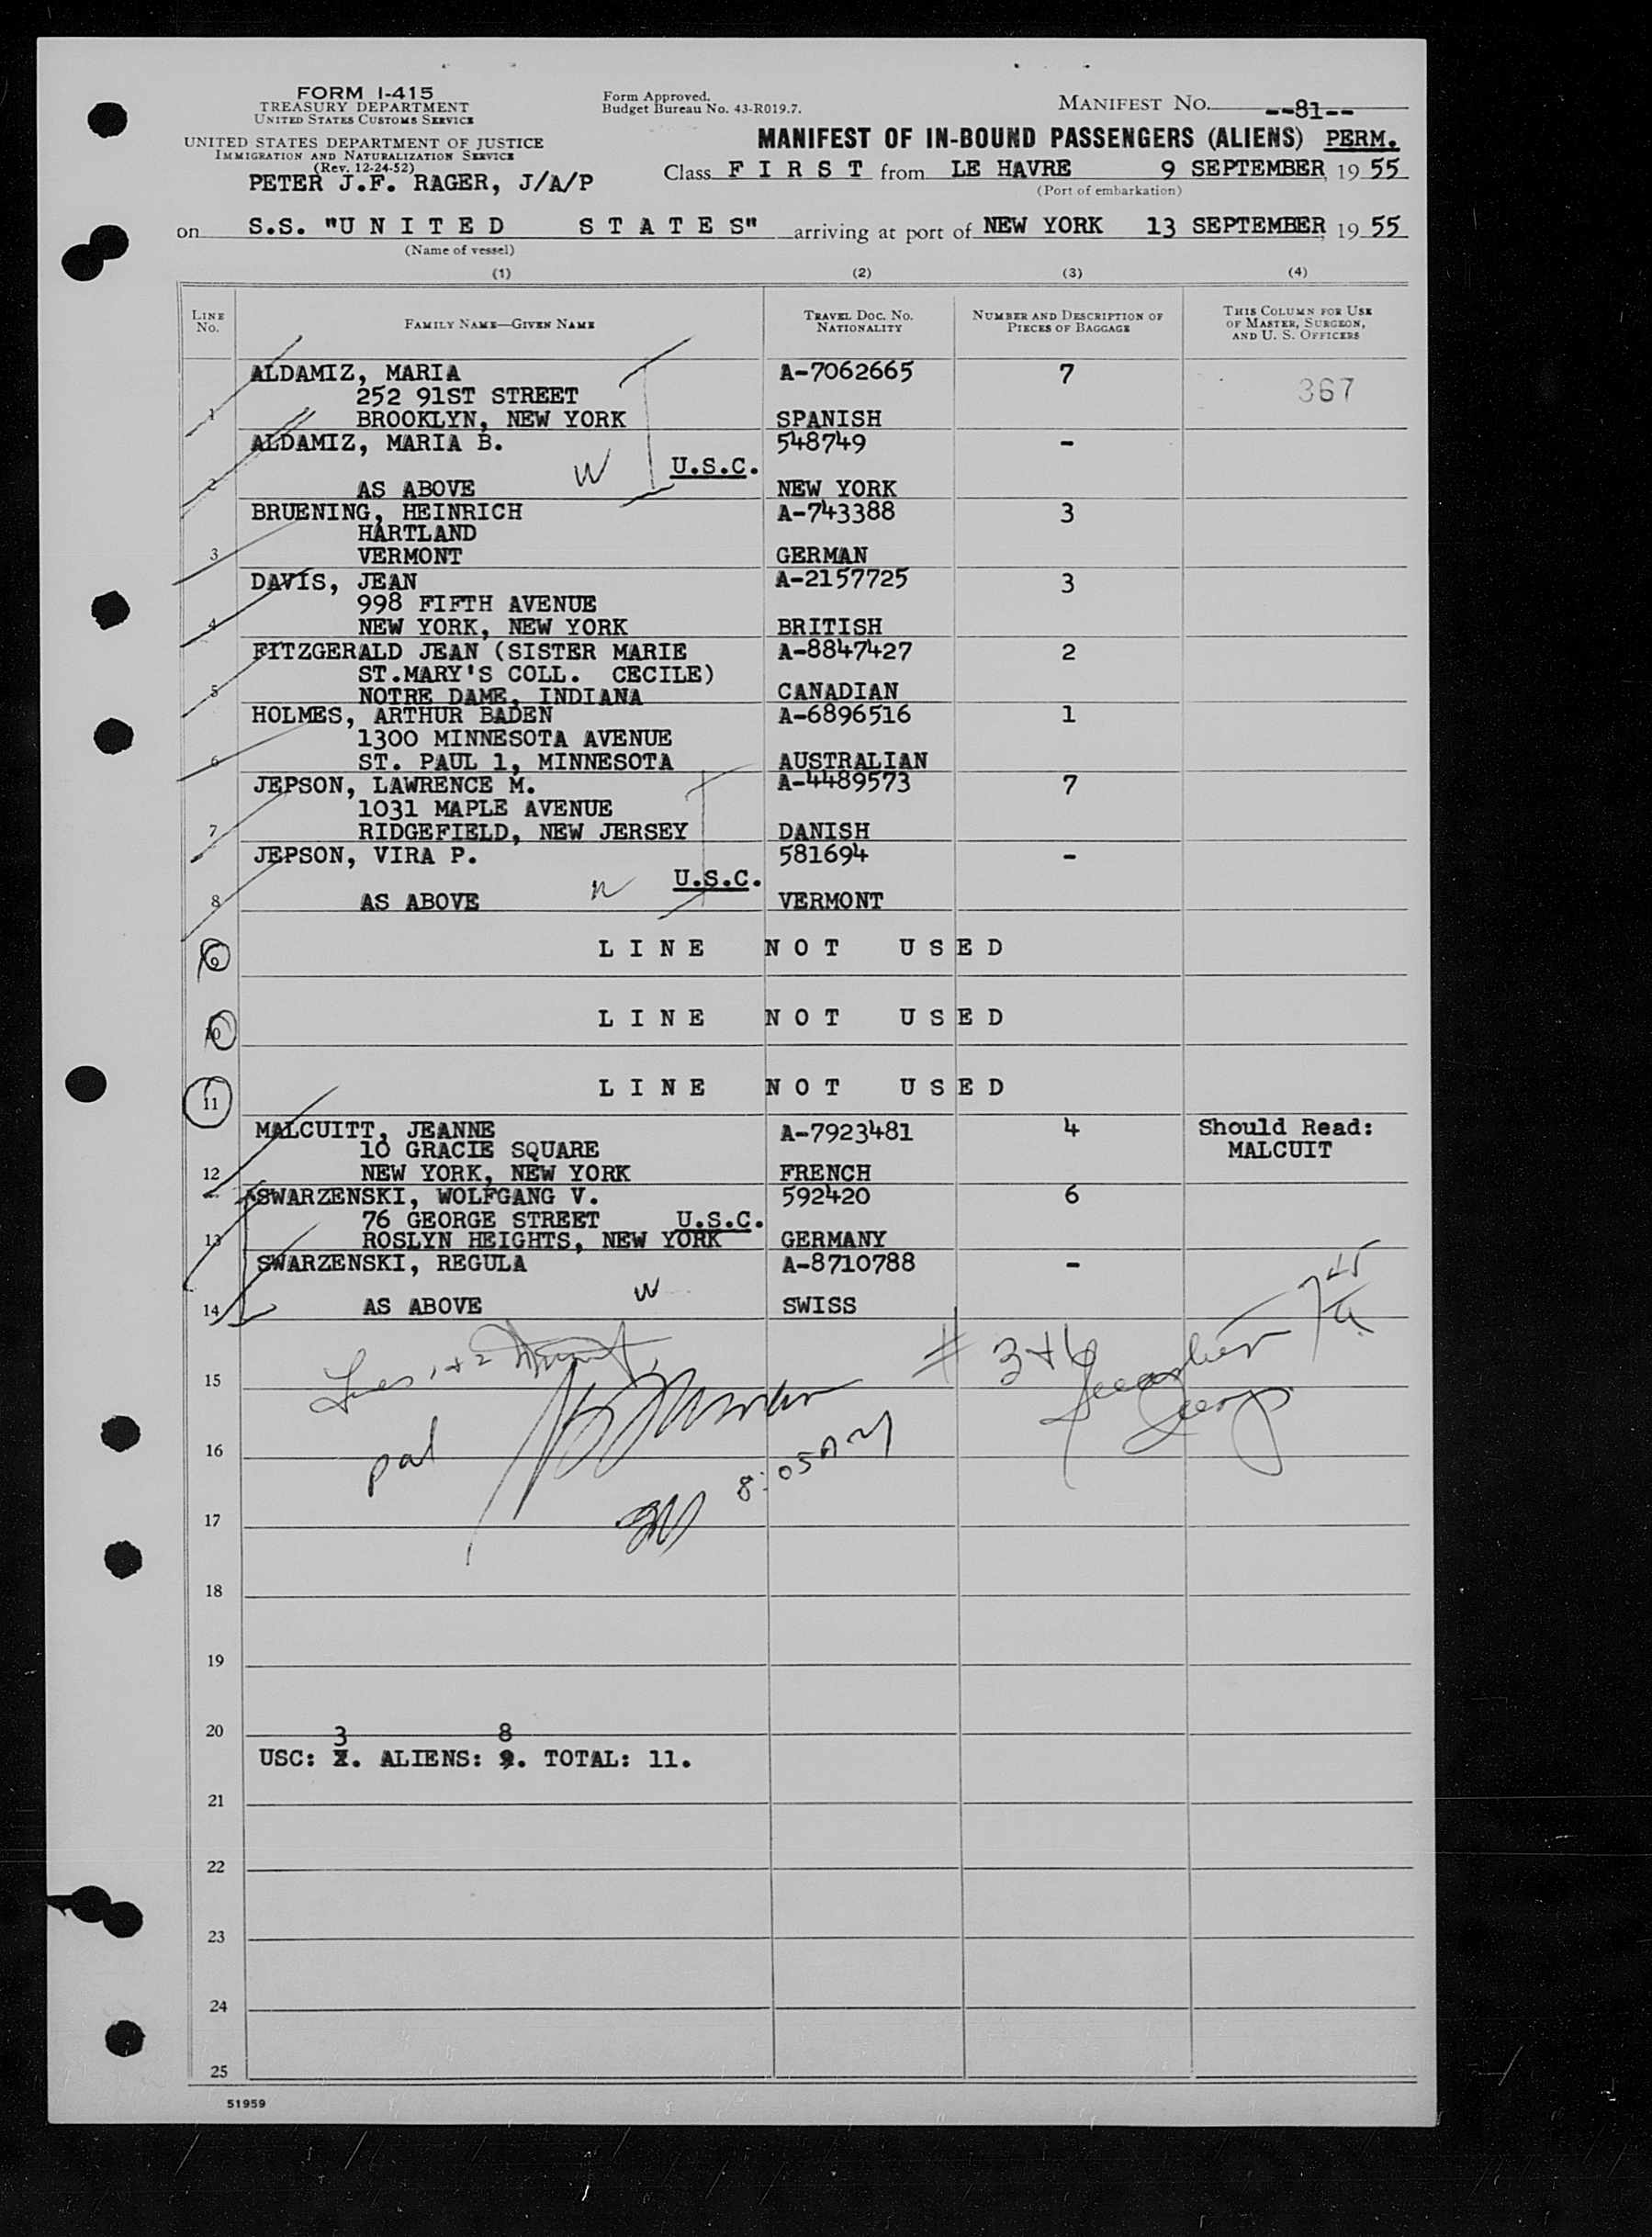 FORM I-415
TREASURY DEPARTMENT
UNITED STATES CUSTOMS SERVICE
UNITED STATES DEPARTMENT OF JUSTICE
IMMIGRATION AND NATURALIZATION SERVICE
(Rev. 12-24-52)
PETER J.F. RAGER, J/A/P
Form Approved.
Budget Bureau No. 43-R019.7.
MANIFEST NO. --81--
MANIFEST OF IN-BOUND PASSENGERS (ALIENS) PERM.
Class F I R S T from LE HAVRE 9 SEPTEMBER, 19 55
(Port of embarkation)
on S.S. "U N I T E D S T A T E S" arriving at port of NEW YORK 13 SEPTEMBER, 19 55
(Name of vessel)
(1) (2) (3) (4)
LINE NO. FAMILY NAME—GIVEN NAME TRAVEL DOC. NO. NATIONALITY NUMBER AND DESCRIPTION OF PIECES OF BAGGAGE THIS COLUMN FOR USE OF MASTER, SURGEON, AND U. S. OFFICERS
ALDAMIZ, MARIA A-7062665 7
252 91ST STREET 367
1 BROOKLYN, NEW YORK SPANISH
ALDAMIZ, MARIA B. 548749 -
W U.S.C.
2 AS ABOVE NEW YORK
BRUENING, HEINRICH A-743388 3
HARTLAND
3 VERMONT GERMAN
DAVIS, JEAN A-2157725 3
998 FIFTH AVENUE
4 NEW YORK, NEW YORK BRITISH
FITZGERALD JEAN (SISTER MARIE A-8847427 2
ST.MARY'S COLL. CECILE)
5 NOTRE DAME, INDIANA CANADIAN
HOLMES, ARTHUR BADEN A-6896516 1
1300 MINNESOTA AVENUE
6 ST. PAUL 1, MINNESOTA AUSTRALIAN
JEPSON, LAWRENCE M. A-4489573 7
1031 MAPLE AVENUE
7 RIDGEFIELD, NEW JERSEY DANISH
JEPSON, VIRA P. 581694 -
U.S.C.
8 AS ABOVE VERMONT
9 L I N E N O T U S E D
10 L I N E N O T U S E D
11 L I N E N O T U S E D
MALCUITT, JEANNE A-7923481 4 Should Read:
10 GRACIE SQUARE MALCUIT
12 NEW YORK, NEW YORK FRENCH
SWARZENSKI, WOLFGANG V. 592420 6
76 GEORGE STREET U.S.C.
13 ROSLYN HEIGHTS, NEW YORK GERMANY
SWARZENSKI, REGULA A-8710788 -
W
14 AS ABOVE SWISS
Lines 1+2
# 3+6
15
16
8:05 AM
17
18
19
20 3 8
USC: 2. ALIENS: 9. TOTAL: 11.
21
22
23
24
25
51959